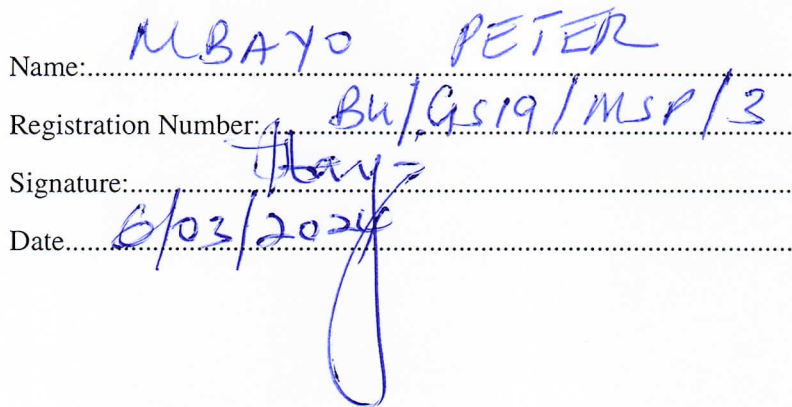 Name: MBAYO PETER
Registration Number: BU/GS19/MSP/3
Signature:
Date 6/03/2024